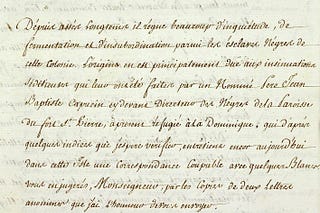 Depuis assés Longtems il règne beaucoup d'inquiétude, de
fermentation et d'insubordination parmi les esclaves Nègres de
cette Colonie. L'origine en est principalement due aux insinuations
séditieuses qui leur ont été faites par un Nommé Pere Jean
Baptiste Capucin cy devant Directeur des Nègres de la Paroisse
du fort St. Pierre, à présent refugié à La Dominique, qui d'après
quelques indices que j'espere vérifier, entretient encor aujourd'hui
dans cette Isle une Correspondance Coupable avec quelques Blancs
vous en jugerés, Monseigneur, par les Copies de deux Lettres
anonimes que j'ai l'honneur de vous envoyer.